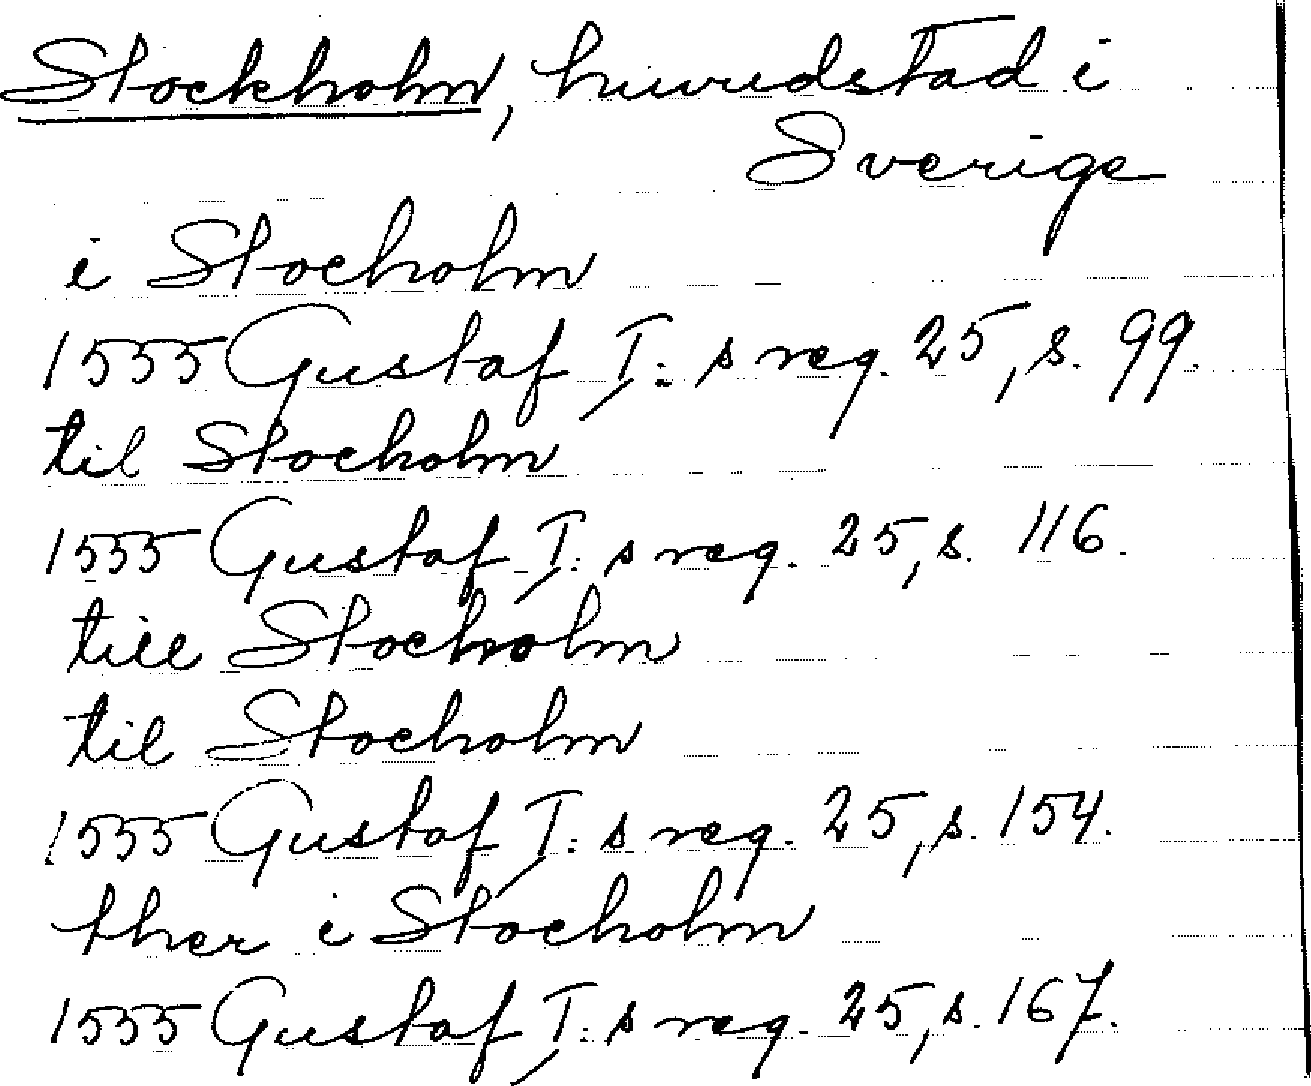 Stockholm, huvudstad i
Sverige
i Stocholm
1555 Gustaf I:s reg. 25, s. 99.
til Stocholm
1555 Gustaf I:s reg. 25, s. 116.
till Stocholm
til Stocholm
1555 Gustaf I:s reg. 25, s. 154.
ther i Stocholm
1555 Gustaf I:s reg. 25, s. 167.